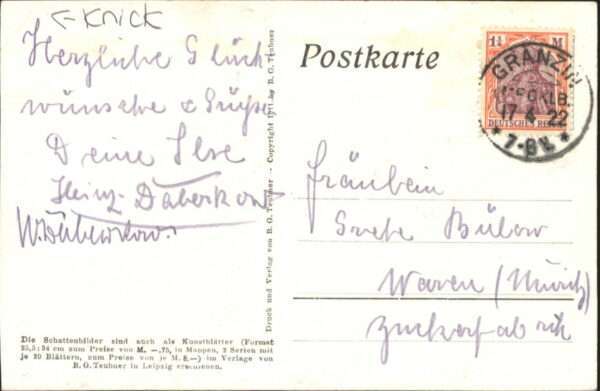 ← KNICK
Herzliche Glück
wünsche & Grüsse
Deine Ilse
Heinz Daberkow
W. Daberkow.
Druck und Verlag von B. G. Teubner - Copyright 1911 by B. G. Teubner
Die Schattenbilder sind auch als Kunstblätter (Format
25,5:34 cm zum Preise von M. —.75, in Mappen, 2 Serien mit
je 20 Blättern, zum Preise von je M. 8.—) im Verlage von
B. G. Teubner in Leipzig erschienen.
Postkarte
1¼ M
DEUTSCHES REICH
GRANZIN
17 4 22
* 7-8 V. *
Fräulein
Grete Bülow
Waren (Müritz)
Zuckerfabrik